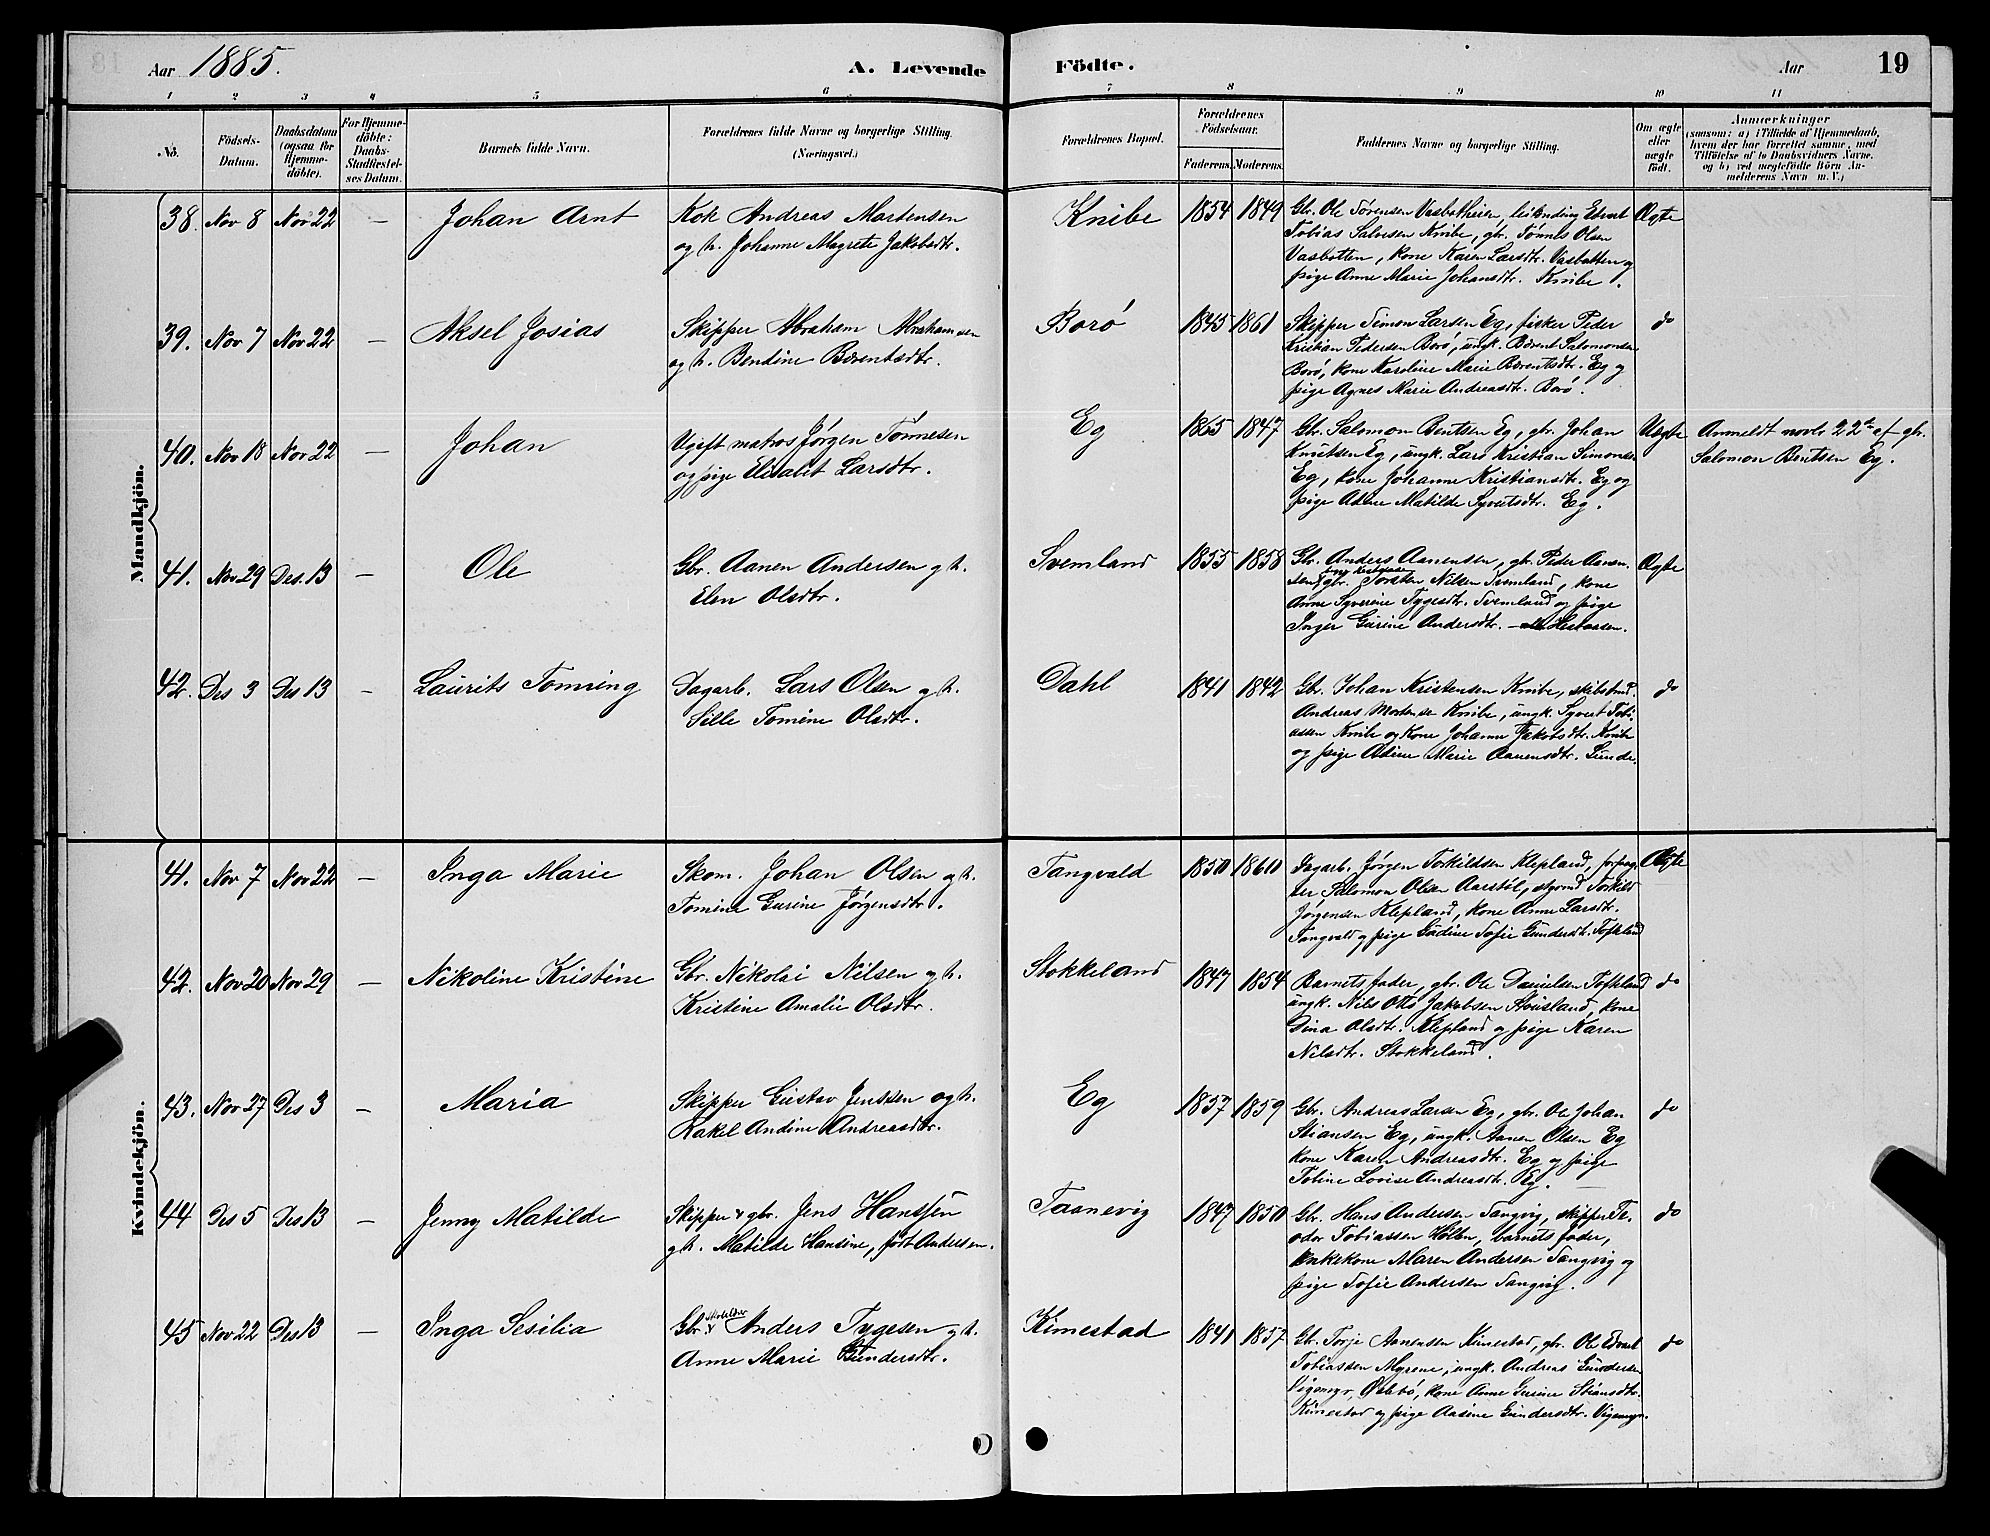 Aar 1885.
A. Levende
Födte.
Aar
19
1 2 3 4 5 6 7 8 9 10 11
No.
Födsels-
Datum.
Daabsdatum
(ogsaa for
Hjemme-
döbte).
For Hjemme-
döbte:
Daabs-
Stadfæstel-
ses Datum.
Barnets fulde Navn.
Forældrenes fulde Navne og borgerlige Stilling.
(Næringsvei.)
Forældrenes Bopæl.
Forældrenes
Födselsaar.
Faderens. Moderens.
Faddernes Navne og borgerlige Stilling.
Om ægte
eller
uægte
födt.
Anmærkninger
(saasom: a) i Tilfælde af Hjemmedaab,
hvem der har forrettet samme, med
Tilföielse af to Daabsvidners Navne,
og b) ved uægtefödte Börn An-
melderens Navn m. V.)
Mandkjön.
38. Nov 8 Nov 22 — Johan Arnt
Kok Andreas Martensen
og h. Johanne Magrete Jakobsdtr.
Knibe 1854 1849
Gbr. Ole Sørensen
Tobias Salvesen Knibe, gbr. Tønnes Olsen
Vasbotten, kone Karen Larsdtr. Vasbotten og
pige Anne Marie Johansdtr. Knibe.
Ægte
39. Nov 7 Nov 22 — Aksel Josias
Skipper Abraham Abrahamsen
og h. Bendine Bærentsdtr.
Borø 1845 1861
Skipper Simon Larsen Eg, fisker Peder
Kristian Pedersen Borø, ungk. Bærent Salomonsen
Borø, kone Karoline Marie Bærentsdtr. Eg og
pige Agnes Marie Andreasdtr. Borø.
do
40. Nov 18 Nov 22 — Johan
Ugift matros Jørgen Tønnesen
og pige Elisabet Larsdtr.
Eg 1865 1847
Gbr. Salomon Bentsen Eg, gbr. Johan
Knutsen Eg, ungk. Lars Kristian Simonsen
Eg, kone Johanne Kristiansdtr. Eg og
pige Adine Matilde Syvertsdtr. Eg.
Uægte
Anmeldt novbr 22de af gbr.
Salomon Bentsen Eg.
41. Nov 29 Des. 13 — Ole
Gbr. Aanen Andersen og h.
Elen Olsdtr.
Svemland 1855 1858
Gbr. Anders Aanensen, gbr. Peder Aanen-
sen, gbr. Torsten Nilsen Svemland, kone
Anne Syverine Tygesdtr. Svemland og pige
Inger Gurine Andersdtr.
Ægte
42. Des 3 Des 13 — Laurits Tomine
Dagarb. Lars Olsen og h.
Sille Tomine Olsdtr.
Dahl 1841 1842
Gbr. Johan Kristensen Knibe, skibstmd.
Andreas Mortensen Knibe, ungk. Syvert Tobi-
assen Knibe og kone Johanne Jakobsdtr. Knibe
og pige Adine Marie Aanensdtr. Lunde.
do
Kvindekjön.
41. Nov 7 Nov 22 — Inga Marie
Skom. Johan Olsen og h.
Tomine Gurine Jørgensdtr.
Tangvald 1850 1860
Dagarb. Jørgen Torkildsen Klepland, forpag-
ter Salomon Olsen Aarstøl, styrmd Torkild
Jørgensen Klepland, kone Anne Larsdtr.
Tangvald og pige Gudine Sofie Gundersdtr. Tofteland
Ægte
42. Nov 20 Nov 29 — Nikoline Kristine
Gbr. Nikolai Nilsen og h.
Kristine Amalie Olsdtr.
Stokkeland 1847 1854
Barnets fader, gbr. Ole Danielsen Tofteland
ungk. Nils Otto Jakobsen Stousland, kone
Dina Olsdtr. Klepland og pige Karen
Nilsdtr. Stokkeland.
do
43. Nov 27 Des 3 — Maria
Skipper Gustav Jenssen og h.
Rakel Andine Andreasdtr.
Eg 1857 1859
Gbr. Andreas Larsen Eg, gbr. Ole Johan
Stiansen Eg, ungk. Aanen Olsen Eg
kone Karen Andreasdtr. Eg og pige
Tobine Lovise Andreasdtr. Eg.
do
44 Des 5 Des 13 — Jenny Matilde
Skipper & gbr. Jens Hanssen
og h. Matilde Hansine, født Andersen.
Taanevig 1847 1850
Gbr. Hans Andersen Tangvig, skipper Te-
odor Tobiassen Holen, barnets fader,
enkekone Maren Andersen Tangvig og
pige Sofie Andersen Tangvig.
do
45 Nov 22 Des 13 — Inga Sesilia
Gbr. & skolelær Anders Tygesen og h.
Anne Marie Gundersdtr.
Kimestad 1841 1857
Gbr. Torje Aanensen Kimestad, gbr. Ole Edvard
Tobiassen Myrene, ungk. Andreas Gundersen
Vigemyr, Øslebø, kone Anne Gurine Stiansdtr.
Kimestad og pige Aasine Gundersdtr. Vigemyr.
do